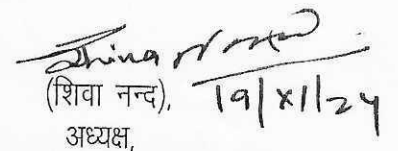 Shiva Nand
(शिवा नन्द), 19/XI/24
अध्यक्ष,